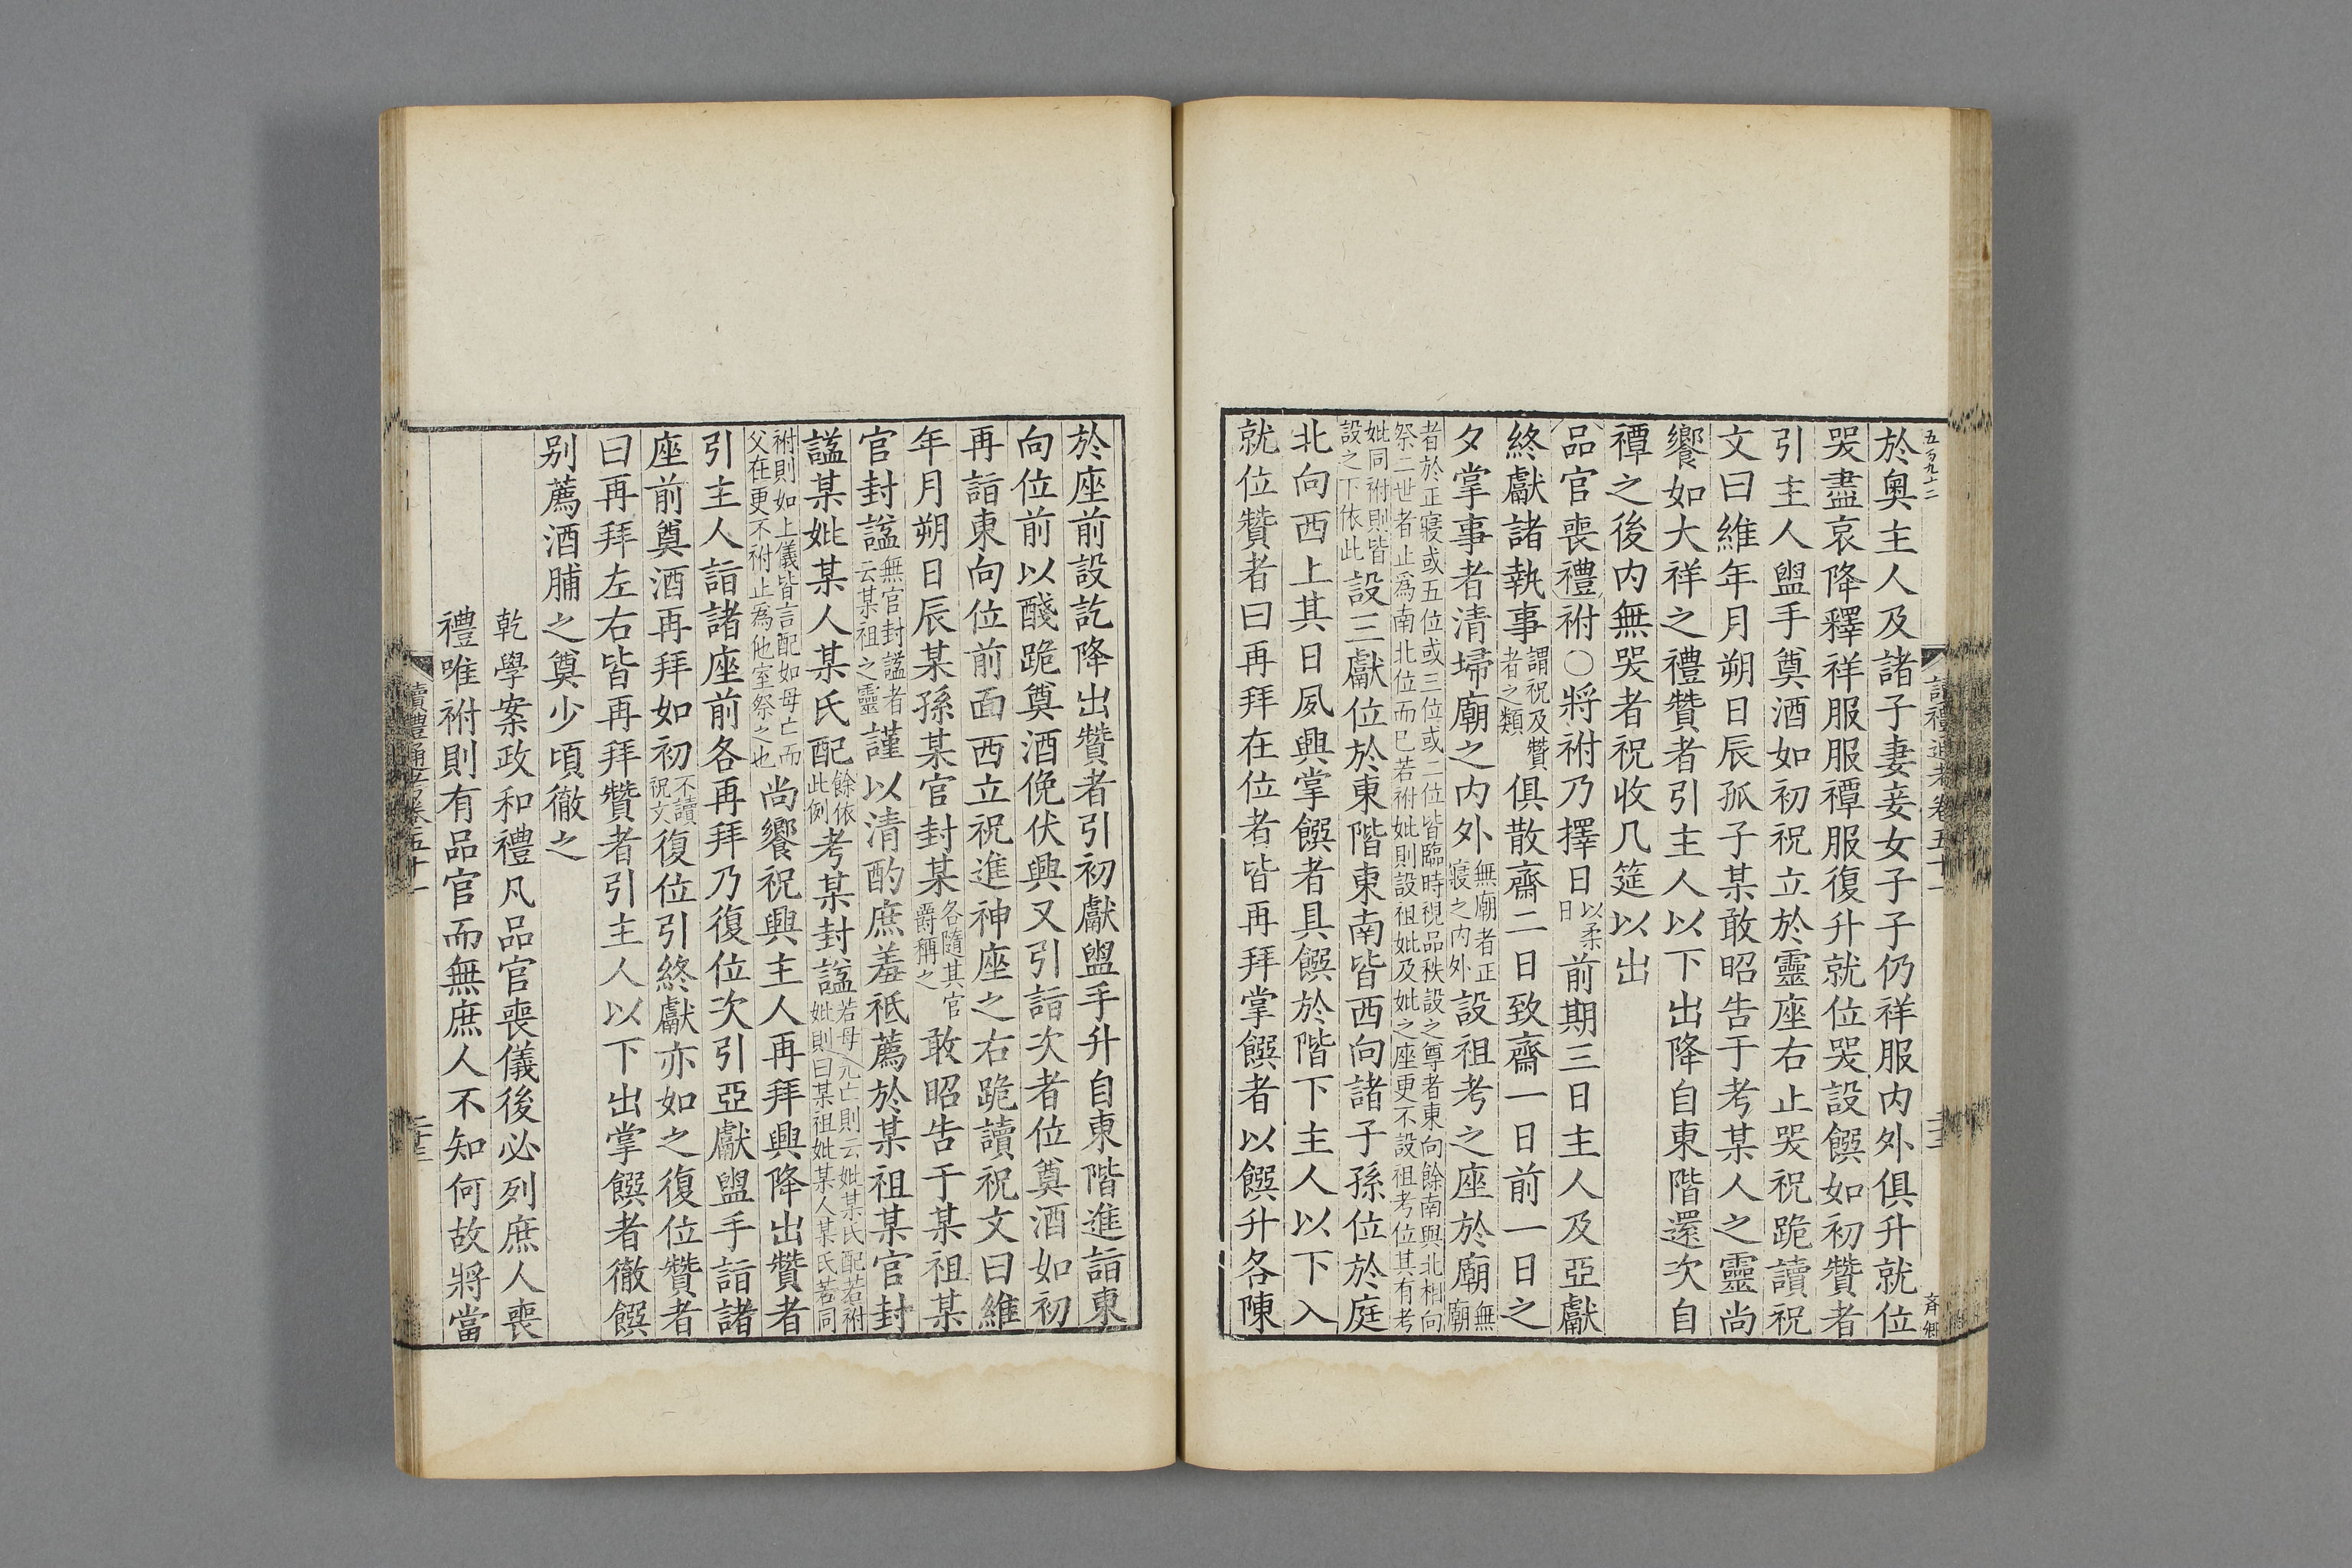 五百九十二
讀禮通考卷五十一
於奧主人及諸子妻妾女子子仍祥服内外俱升就位
哭盡哀降釋祥服服禫服復升就位哭設饌如初贊者
引主人盥手奠酒如初祝立於靈座右止哭祝跪讀祝
文曰維年月朔日辰孤子某敢昭告于考某人之靈尚
饗如大祥之禮贊者引主人以下出降自東階還次自
禫之後内無哭者祝收几筵以出
品官喪禮祔○將祔乃擇日以柔日前期三日主人及亞獻
終獻諸執事謂祝及贊者之類俱散齋二日致齋一日前一日之
夕掌事者清埽廟之内外無廟者正寢之内外設祖考之座於廟無廟
者於正寢或五位或三位或二位皆臨時視品秩設之尊者東向餘南與北相向
祭二世者止爲南北位而已若祔妣則設祖妣及妣之座更不設祖考位其有考
妣同祔則皆設之下依此設三獻位於東階東南皆西向諸子孫位於庭
北向西上其日夙興掌饌者具饌於階下主人以下入
就位贊者曰再拜在位者皆再拜掌饌者以饌升各陳
於座前設訖降出贊者引初獻盥手升自東階進詣東
向位前以醆跪奠酒俛伏興又引詣次者位奠酒如初
再詣東向位前面西立祝進神座之右跪讀祝文曰維
年月朔日辰某孫某官封某各隨其官爵稱之敢昭告于某祖某
官封諡無官封諡者云某祖之靈謹以清酌庶羞祗薦於某祖某官封
諡某妣某人某氏配餘依此例考某封諡若母先亡則云妣某氏配若祔妣則曰某祖妣某人某氏若同
祔則如上儀皆言配如母亡而父在更不祔止爲他室祭之也尚饗祝興主人再拜興降出贊者
引主人詣諸座前各再拜乃復位次引亞獻盥手詣諸
座前奠酒再拜如初不讀祝文復位引終獻亦如之復位贊者
曰再拜左右皆再拜贊者引主人以下出掌饌者徹饌
别薦酒脯之奠少頃徹之
乾學案政和禮凡品官喪儀後必列庶人喪
禮唯祔則有品官而無庶人不知何故將當
讀禮通考卷五十一